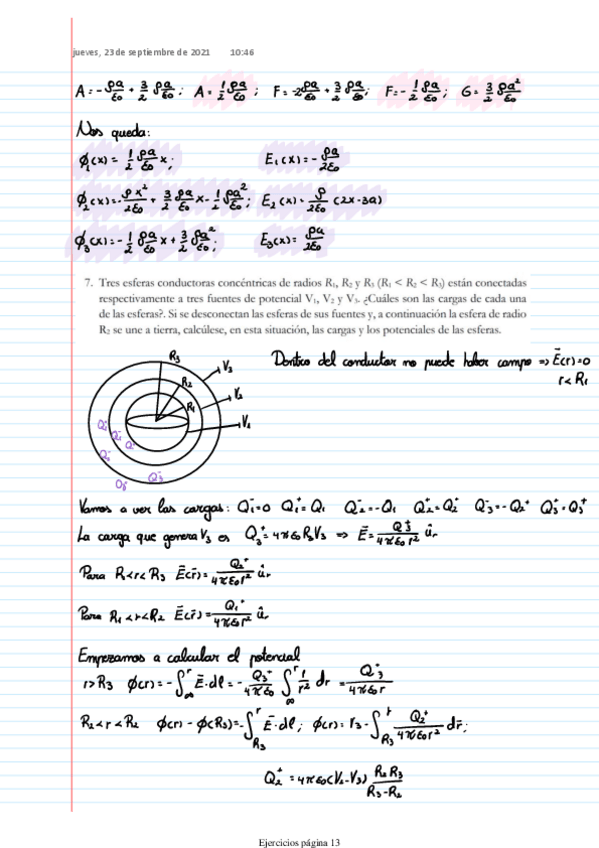 jueves, 23 de septiembre de 2021 10:46
A = -ρa/ε₀ + 3/2 ρa/ε₀ ; A = 1/2 ρa/ε₀ ; F = -2ρa/ε₀ + 3/2 ρa/ε₀ ; F = -1/2 ρa/ε₀ ; G = 3/2 ρa²/ε₀
Nos queda:
ϕ₁(x) = 1/2 ρa/ε₀ x ; E₁(x) = -ρa/2ε₀
ϕ₂(x) = -ρx²/2ε₀ + 3/2 ρa/ε₀ x - 1/2 ρa²/ε₀ ; E₂(x) = ρ/2ε₀ (2x-3a)
ϕ₃(x) = -1/2 ρa/ε₀ x + 3/2 ρa²/ε₀ ; E₃(x) = ρa/2ε₀
7. Tres esferas conductoras concéntricas de radios R₁, R₂ y R₃ (R₁ < R₂ < R₃) están conectadas
respectivamente a tres fuentes de potencial V₁, V₂ y V₃. ¿Cuáles son las cargas de cada una
de las esferas?. Si se desconectan las esferas de sus fuentes y, a continuación la esfera de radio
R₂ se une a tierra, calcúlese, en esta situación, las cargas y los potenciales de las esferas.
Dentro del conductor no puede haber campo => E⃗(r)=0
r<R₁
R₃
V₃
R₂
V₂
R₁
V₁
Q₃⁻
Vamos a ver las cargas: Q₁⁻=0 Q₁⁺=Q₁ Q₂⁻=-Q₁ Q₂⁺=Q₂⁺ Q₃⁻=-Q₂⁺ Q₃⁺=Q₃⁺
La carga que genera V₃ es Q₃⁺=4πε₀R₃V₃ => E⃗ = Q₃⁺/4πε₀r² ûr
Para R₂<r<R₃ E⃗(r⃗) = Q₂⁺/4πε₀r² ûr
Para R₁<r<R₂ E⃗(r⃗) = Q₁⁺/4πε₀r² ûr
Empezamos a calcular el potencial
r>R₃ ϕ(r) = -∫∞^r E⃗·dl = -Q₃⁺/4πε₀ ∫∞^r 1/r² dr = Q₃⁺/4πε₀r
R₂<r<R₂ ϕ(r) - ϕ(R₃) = -∫R₃^r E⃗·dl ; ϕ(r) = V₃ - ∫R₃^r Q₂⁺/4πε₀r² dr⃗ ;
Q₂⁺ = 4πε₀(V₂-V₃) R₂R₃/R₃-R₂
Ejercicios página 13